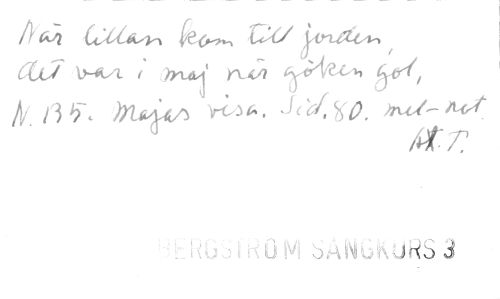 När lillan kom till jorden,
det var i maj när göken gol,
N. 135. Majas visa. Sid. 80. mel-not.
At. T.
BERGSTRÖM SÅNGKURS 3